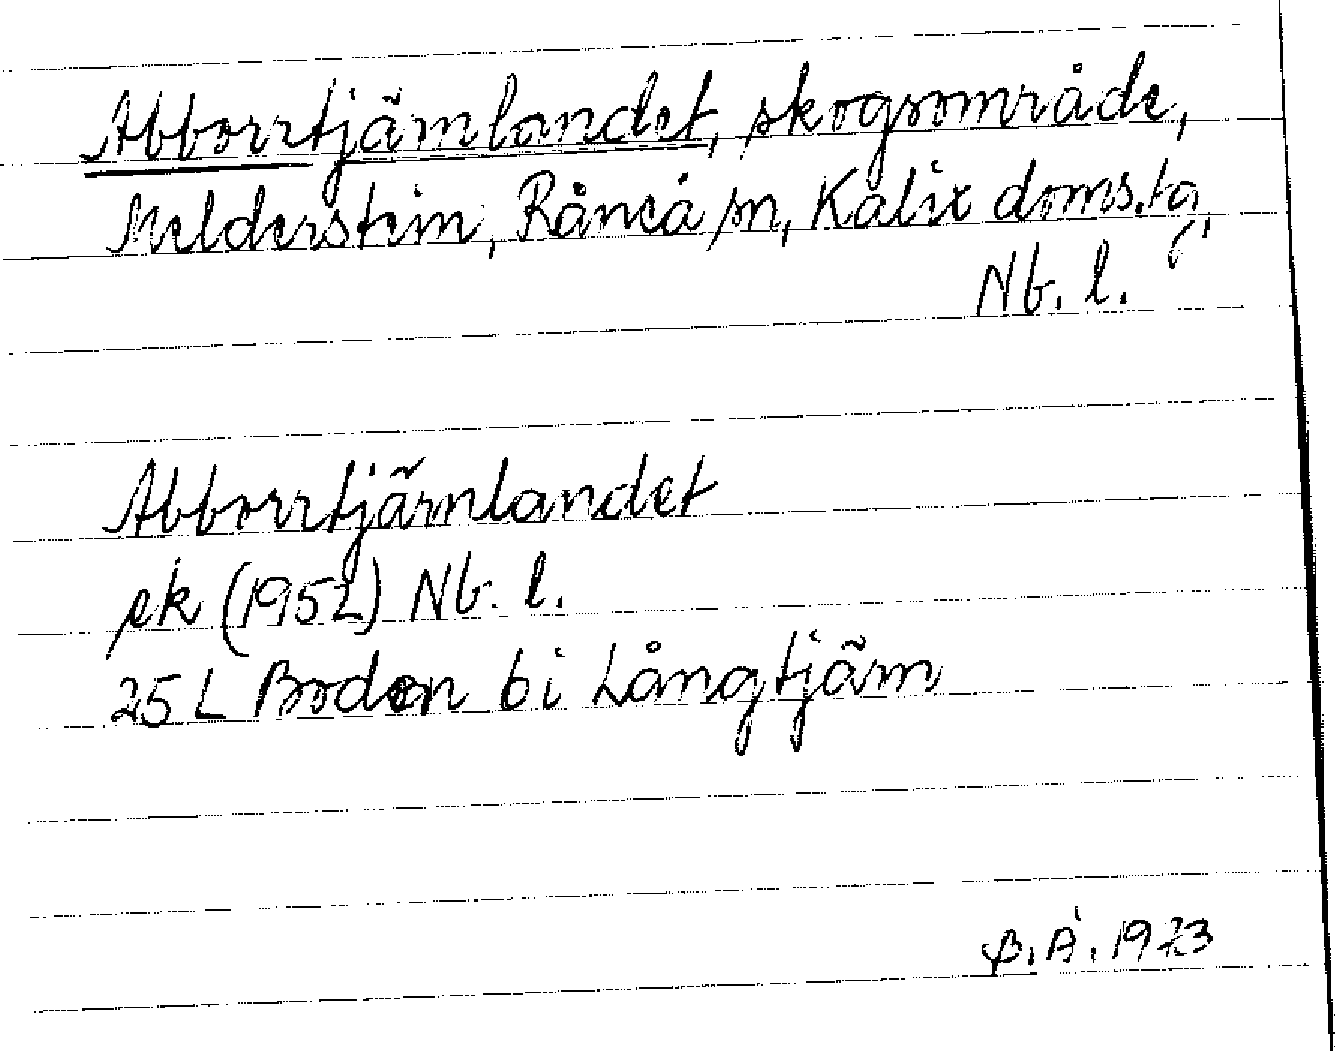 Abborrtjärnlandet, skogsområde,
Melderstein, Råneå sn, Kalix doms.tg,
Nb. l.
Abborrtjärnlandet
ek (1952) Nb. l.
25 L Boden 6 i Långtjärn
B. Å. 1973